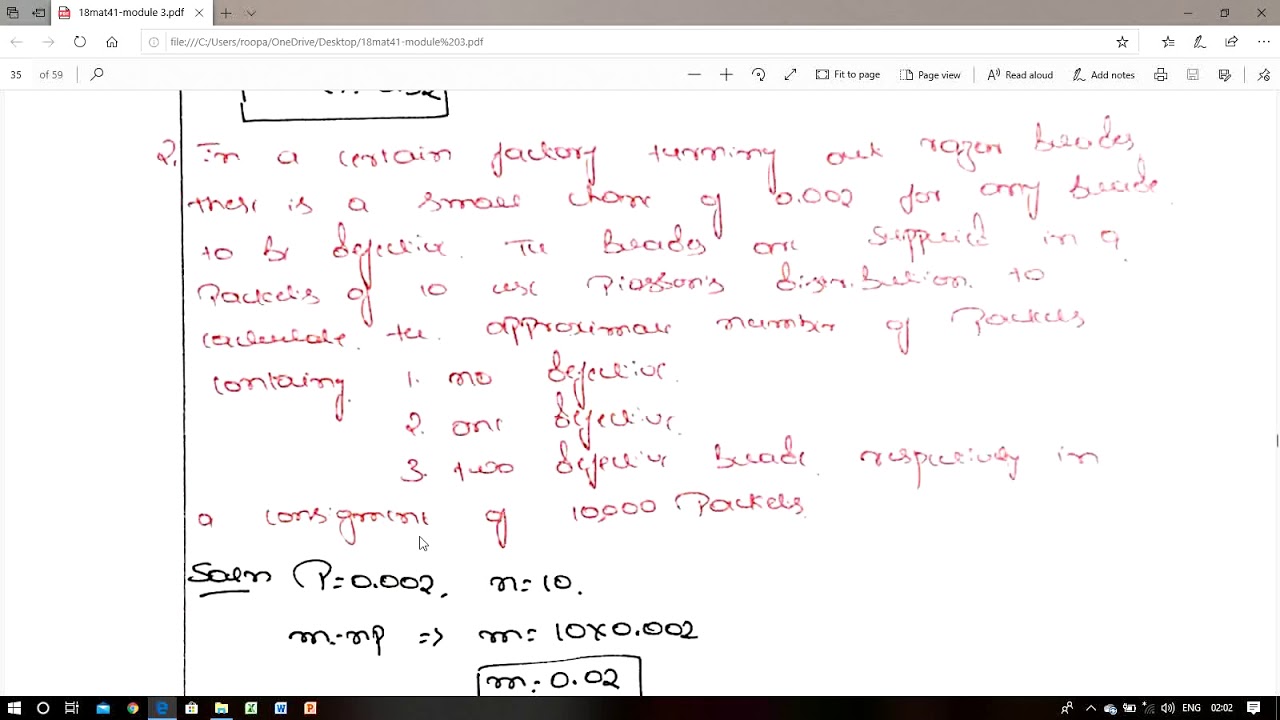 18mat41-module 3.pdf
file:///C:/Users/roopa/OneDrive/Desktop/18mat41-module%203.pdf
35 of 59 Fit to page Page view Read aloud Add notes
2. In a certain factory turning out razor blades
there is a small chance of 0.002 for any blade
to be defective. The blades are supplied in a
Packets of 10 use Piosson's distribution to
calculate the approximate number of Packets
containg 1. no defective.
2. one defective.
3. two defective blade respectively in
a consignment of 10,000 Packets.
Soln P=0.002, n=10.
m=np => m=10×0.002
m=0.02
ENG 02:02